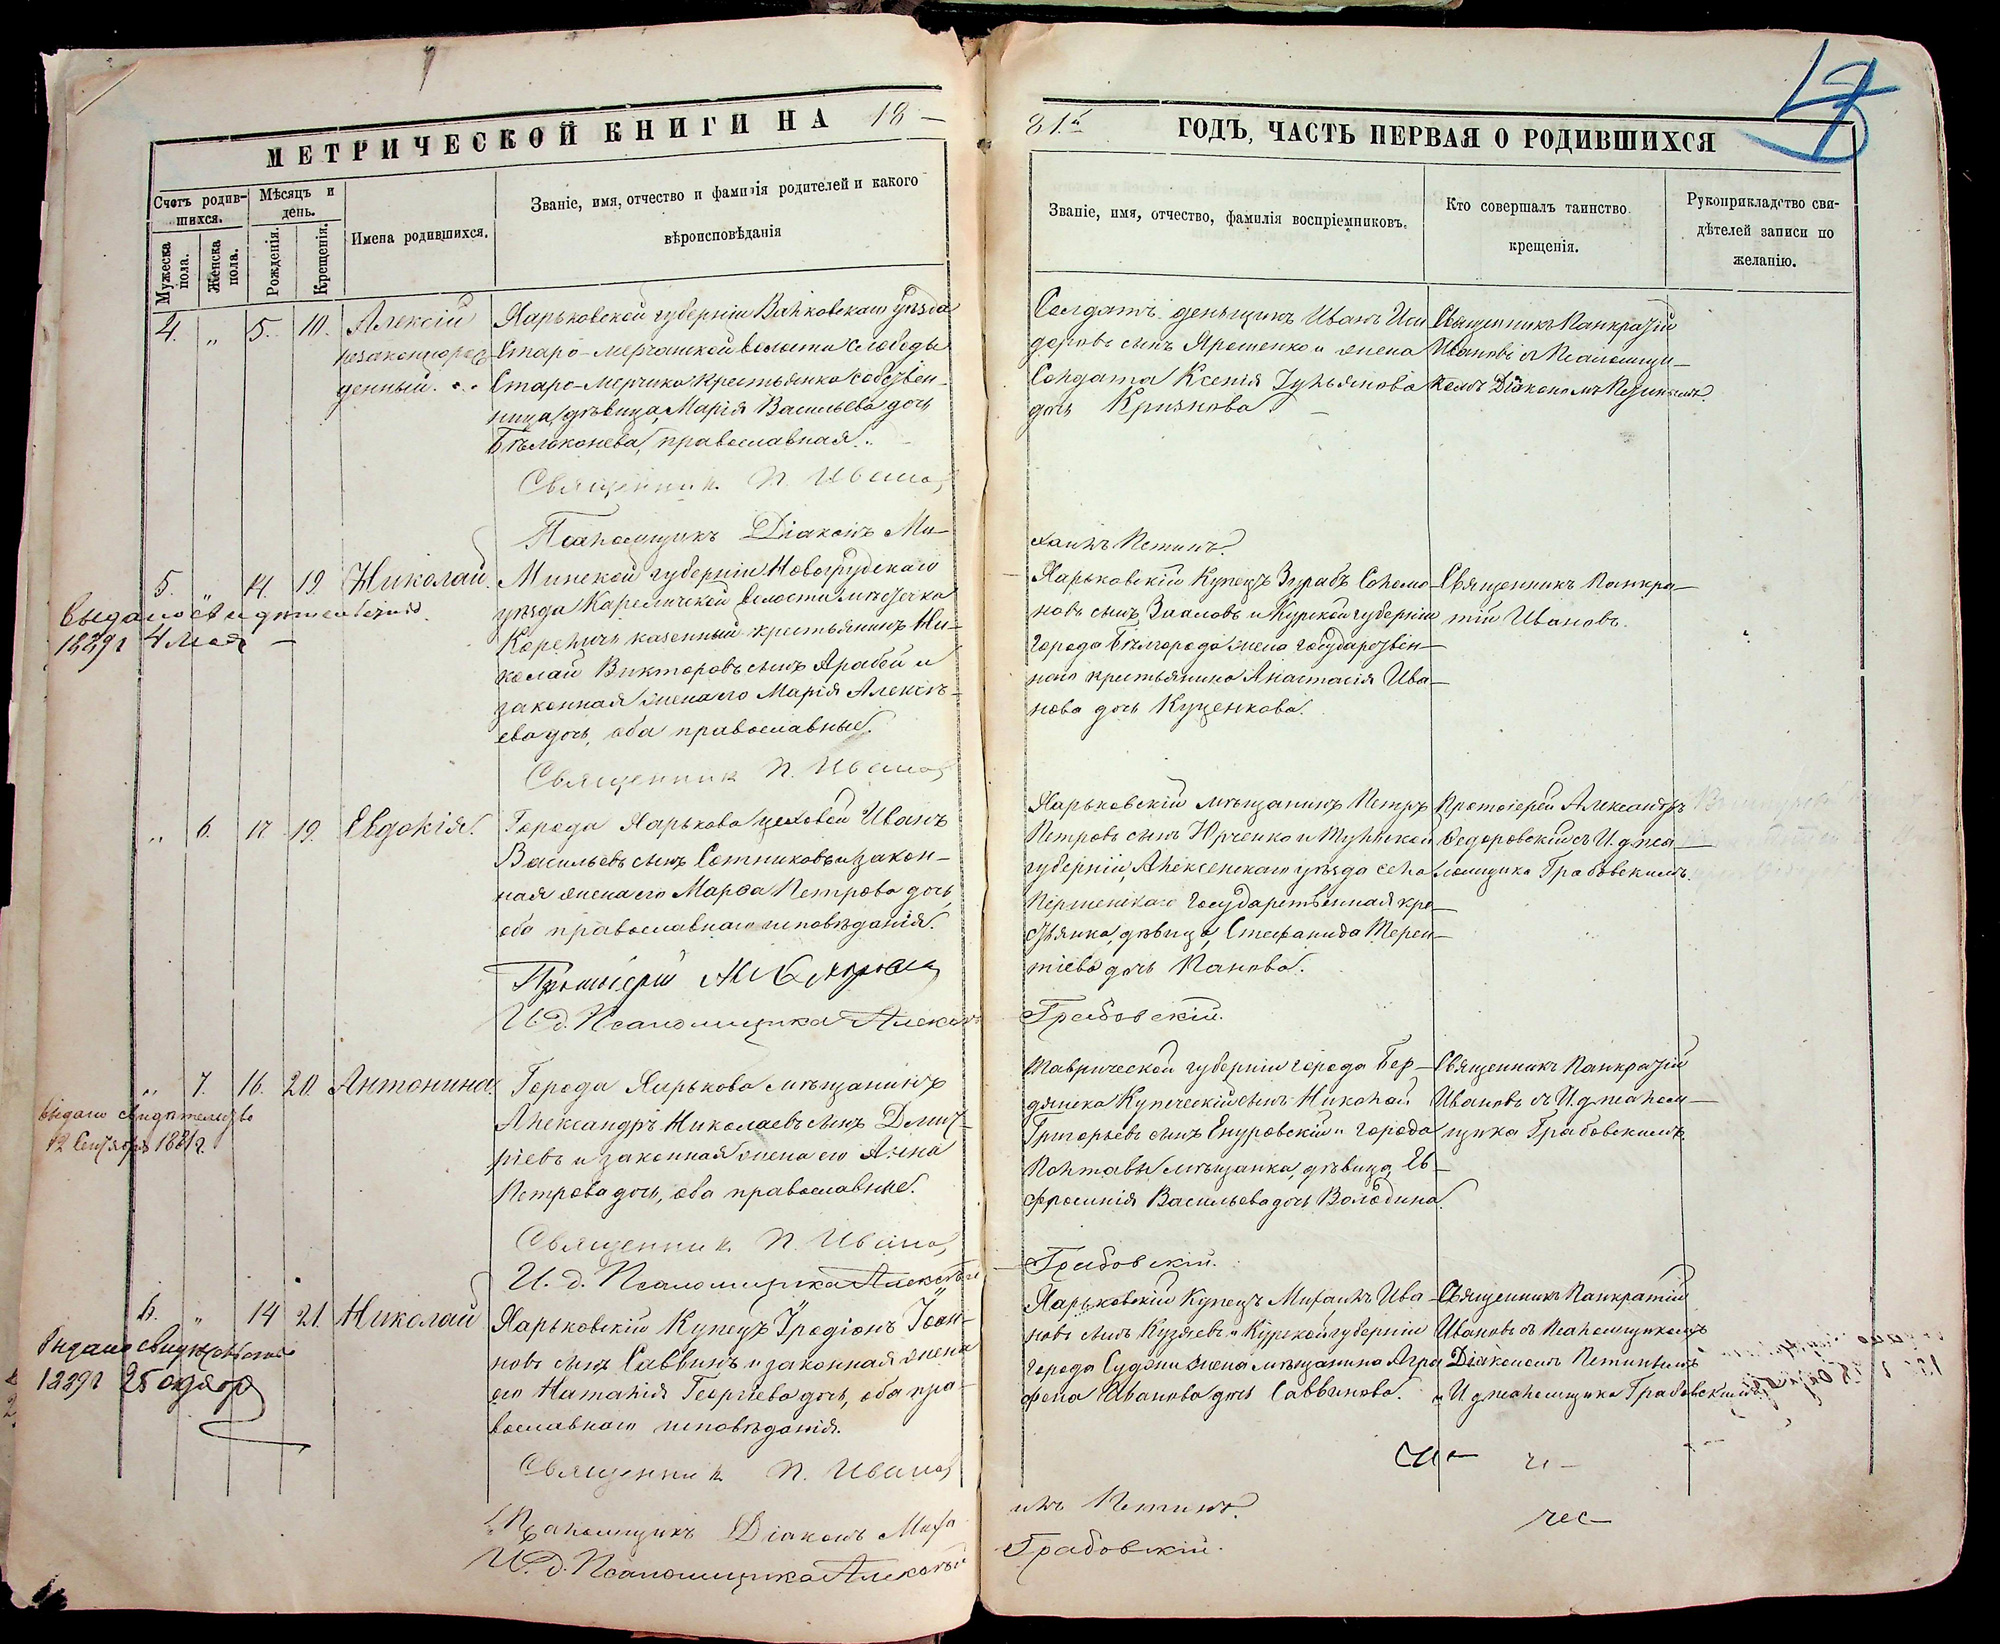 МЕТРИЧЕСКОЙ КНИГИ НА 18—
81й ГОДЪ, ЧАСТЬ ПЕРВАЯ О РОДИВШИХСЯ
Счетъ родив-
шихся.
Мужеска пола.
Женска пола.
Мѣсяцъ и
день.
Рожденія.
Крещенія.
Имена родившихся.
Званіе, имя, отчество и фамилія родителей и какого
вѣроисповѣданія
Званіе, имя, отчество, фамилія воспріемниковъ.
Кто совершалъ таинство
крещенія.
Рукоприкладство сви-
дѣтелей записи по
желанію.
4. „ 5. 10. Алексій
незаконнорож-
денный.
Харьковской губерніи Валковскаго уѣзда
Старо-Мерчанской волости слободы
Старо-Мерчика крестьянка собствен-
ница, дѣвица, Марія Васильева дочь
Бѣлоконева, православная.
Священник П. Иванов
Псаломщикъ Діаконъ Ми-
Солдатъ деньщикъ Иванъ Иси
доровъ сынъ Ярошенко и жена
Солдата Ксенія Лукьянова
дочь Крюкова
хаилъ Петинъ.
Священникъ Панкратій
Ивановъ съ Псаломщи-
комъ Діакономъ Петинымъ.
5. „ 14. 19. Николай.
Выдано свидѣтельство
1889г 4 Мая —
Минской губерніи Новогрудскаго
уѣзда Кареличской волости мѣстечка
Кореличъ казенный крестьянинъ Ни-
колай Викторовъ сынъ Арабей и
законная жена его Марія Алексѣ-
ева дочь, оба православные.
Священник П. Иванов
Харьковскій Купецъ Зурабъ Соломо
новъ сынъ Зааловъ и Курской губерніи
города Бѣлгорода жена государствен-
наго крестьянина Анастасія Ива-
нова дочь Куценкова.
Священникъ Панкра-
тій Ивановъ.
„ 6. 17 19. Евдокія.
Города Харькова цеховой Иванъ
Васильевъ сынъ Сотниковъ и закон-
ная жена его Марѳа Петрова дочь,
оба православнаго исповѣданія.
Протоіерей
И. д. Псаломщика Алексѣй
Харьковскій мѣщанинъ Петръ
Петровъ сынъ Юрченко и Тульской
губерніи, Алексенскаго уѣзда села
Государственная кре-
стьянка, дѣвица, Стефанида Терен-
тіева дочь Панова.
Грабовскій.
Протоіерей Александръ
Ѳедоровскій съ И. д. пса-
ломщика Грабовскимъ.
„ 7. 16. 20. Антонина.
Выдано свидѣтельство
12 Сентября 1881г.
Города Харькова мѣщанинъ
Александръ Николаевъ сынъ Дмит-
ріевъ и законная жена его Анна
Петрова дочь, оба православные.
Священник П. Иванов
И. д. Псаломщика Алексѣй
Таврической губерніи города Бер-
дянска Купеческій сынъ Николай
Григорьевъ сынъ Енуровскій и города
Полтавы мѣщанка, дѣвица, Ев-
фросинія Васильева дочь Володина.
Грабовскій.
Священникъ Панкратій
Ивановъ съ И. д. псалом-
щика Грабовскимъ.
6. „ 14 21. Николай
Выдано свидѣтельство
1889г 25 октяб
Харьковскій Купецъ Иродіонъ Іоан-
новъ сынъ Саввинъ и законная жена
его Наталія Георгіева дочь, оба пра-
вославнаго исповѣданія.
Священник П. Иванов
Псаломщикъ Діаконъ Миха
И. д. Псаломщика Алексѣй
Харьковскій Купецъ Михаилъ Ива-
новъ сынъ Кузяевъ и Курской губерніи
города Суджи жена мѣщанина Агра
фена Иванова дочь Саввинова.
илъ Петинъ.
Грабовскій.
Священникъ Панкратій
Ивановъ съ Псаломщикомъ
Діакономъ Петинымъ
и И. д. псаломщика Грабовскимъ